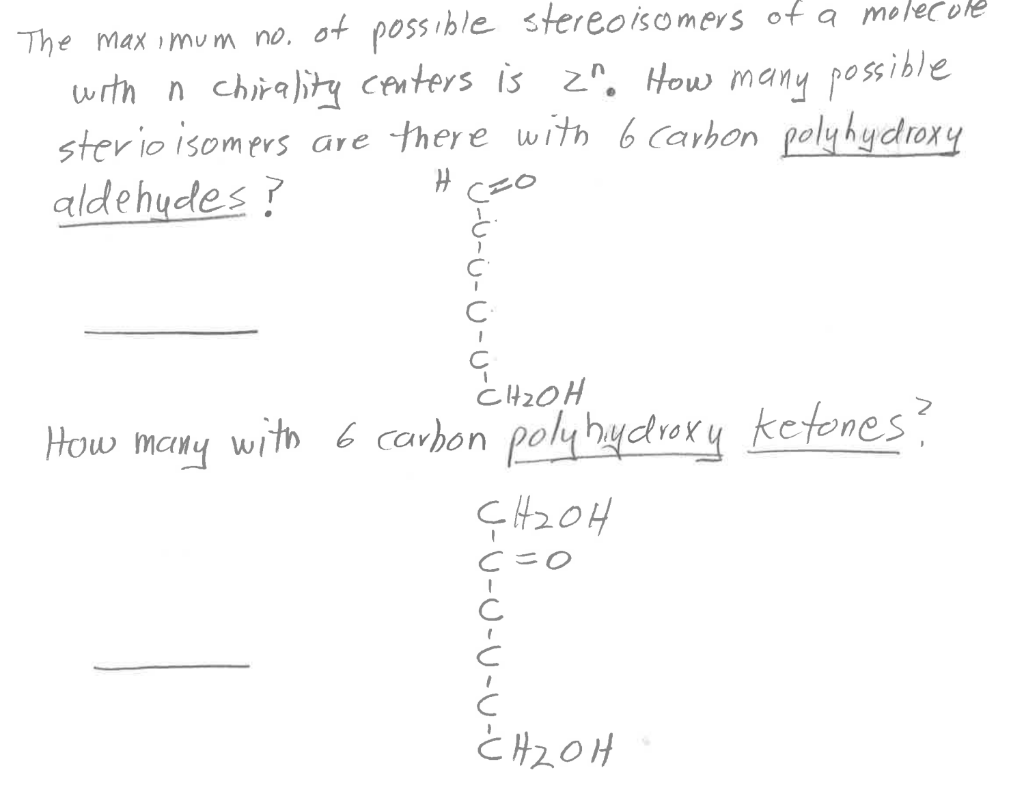 The maximum no. of possible stereoisomers of a molecule
with n chirality centers is 2ⁿ. How many possible
sterio isomers are there with 6 carbon polyhydroxy
aldehydes?
H C=O
C
C
C
C
CH2OH
How many with 6 carbon polyhydroxy ketones?
CH2OH
C=O
C
C
C
CH2OH